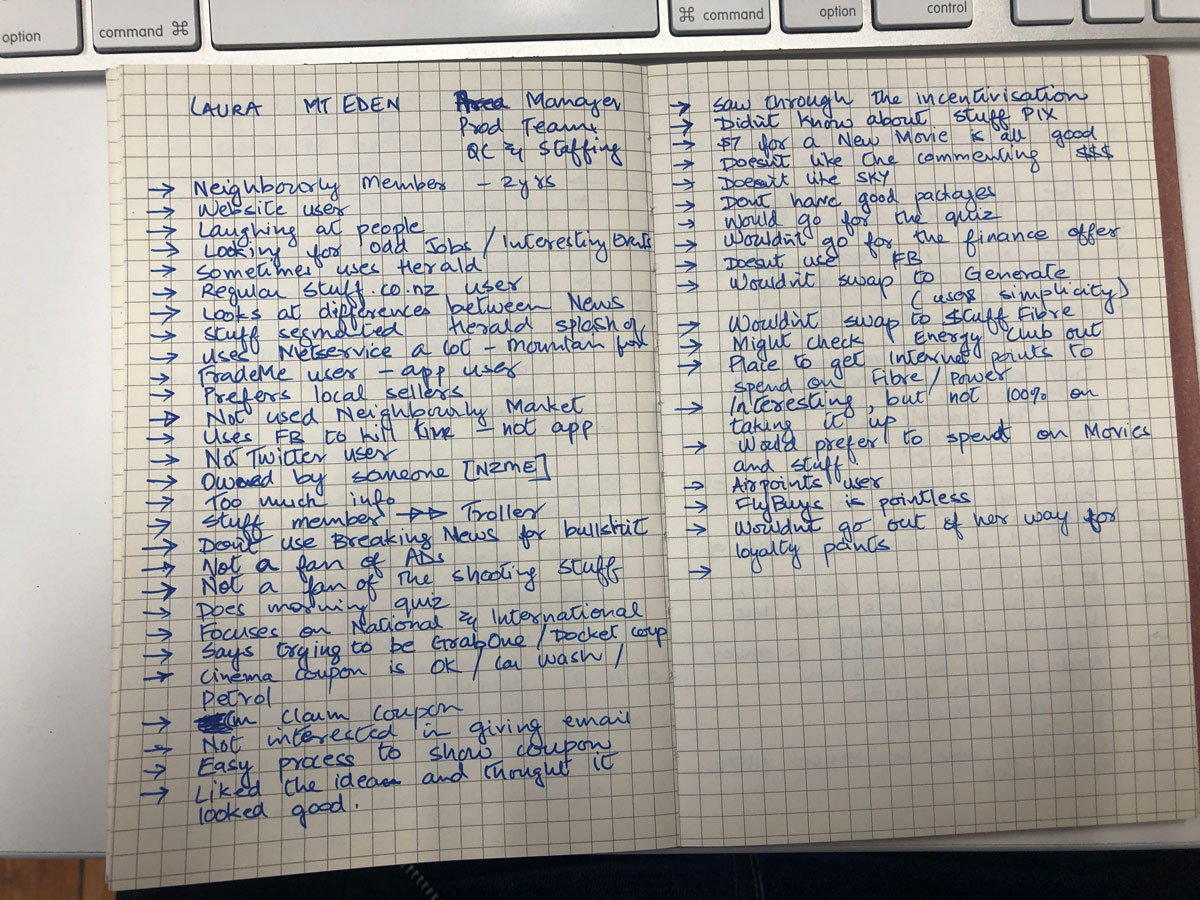 option
command ⌘
⌘ command
option
control
LAURA MT EDEN Manager
Prod Team
QC & Staffing
→ Neighbourly Member - 2yrs
→ Website user
→ Laughing at people
→ Looking for odd Jobs / Interesting Events
→ Sometimes uses Herald
→ Regular stuff.co.nz user
→ Looks at differences between News
→ Stuff segmented Herald splash of
→ uses Metservice a lot - mountain
→ TradeMe user - app user
→ Prefers local sellers
→ Not used Neighbourly Market
→ Uses FB to kill time - not app
→ Not Twitter user
→ Owned by someone [NZME]
→ Too much info
→ Stuff member →→ Troller
→ Don't use Breaking News for bullshit
→ Not a fan of ADs
→ Not a fan of the shooting stuff
→ Does morning quiz
→ Focuses on National & International
→ Says trying to be GrabOne / Docket coup
→ cinema coupon is OK / car wash /
petrol
→ claim coupon
→ Not interested in giving email
→ Easy process to show coupon
→ Liked the idea and thought it
looked good.
→ Saw through the incentivisation
→ Didn't know about stuff PIX
→ $7 for a New Movie is all good
→ Doesn't like the commenting $$$
→ Doesn't like SKY
→ Dont have good packages
→ Would go for the quiz
→ Wouldn't go for the finance offer
→ Doesnt use FB
→ Wouldn't swap to Generate
(uses simplicity)
→ Wouldnt swap to Stuff Fibre
→ Might check Energy Club out
→ Place to get Internet points to
spend on Fibre / Power
→ Interesting, but not 100% on
taking it up
→ Would prefer to spend on Movies
and stuff.
→ Airpoints user
→ FlyBuys is pointless
→ Wouldnt go out of her way for
loyalty points
→